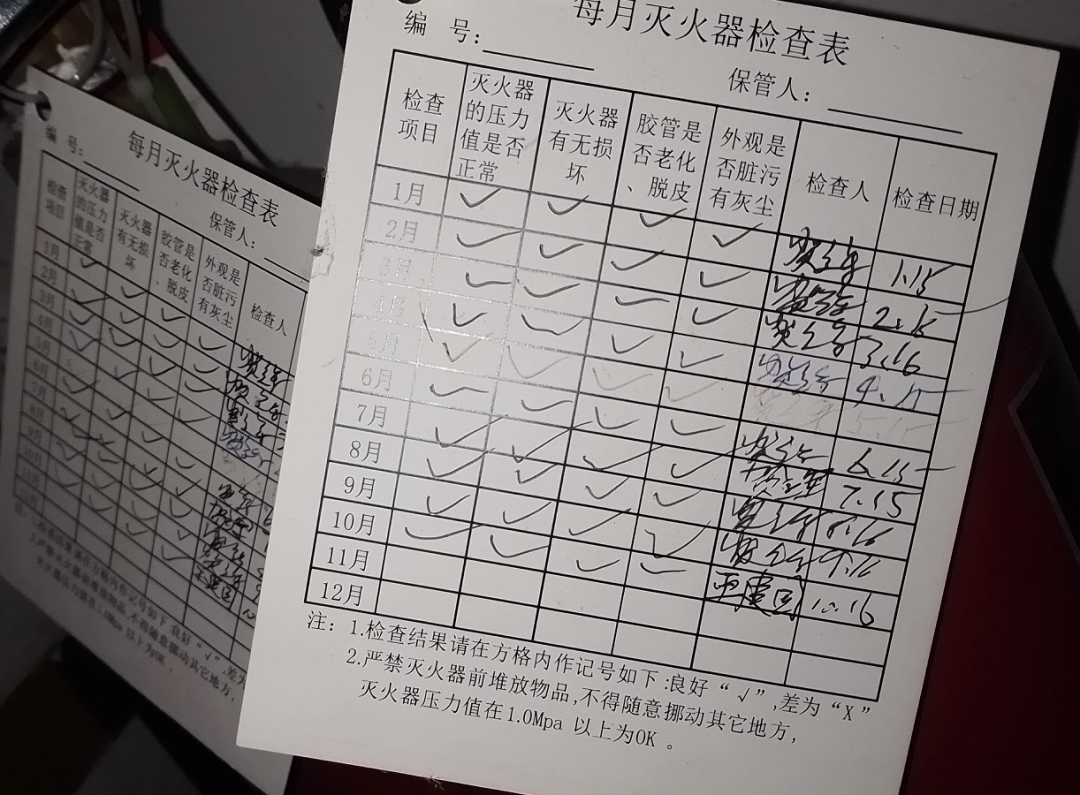 每月灭火器检查表
编 号:
保管人:
检查项目 灭火器的压力值是否正常 灭火器有无损坏 胶管是否老化、脱皮 外观是否脏污有灰尘 检查人 检查日期
1月 ✓ ✓ ✓ ✓ 1.15
2月 ✓ ✓ ✓ ✓ 2.15
3月 ✓ ✓ ✓ ✓ 3.16
4月 ✓ ✓ ✓ ✓ 4.15
5月 ✓ ✓ ✓ ✓ 5.15
6月 ✓ ✓ ✓ ✓ 6.15
7月 ✓ ✓ ✓ ✓ 7.15
8月 ✓ ✓ ✓ ✓ 8.16
9月 ✓ ✓ ✓ ✓ 9.16
10月 ✓ ✓ ✓ ✓ 10.16
11月
12月
注: 1.检查结果请在方格内作记号如下:良好“√”,差为“X”
2.严禁灭火器前堆放物品,不得随意挪动其它地方,
灭火器压力值在1.0Mpa 以上为OK 。
每月灭火器检查表
编 号:
保管人:
检查项目 灭火器的压力值是否正常 灭火器有无损坏 胶管是否老化、脱皮 外观是否脏污有灰尘 检查人
1月
2月
3月
4月
5月
6月
7月
8月
9月
10月
11月
12月
注: 1.检查结果请在方格内作记号如下:良好“√”,差为
2.严禁灭火器前堆放物品,不得随意挪动其它地方,
灭火器压力值在1.0Mpa 以上为OK 。